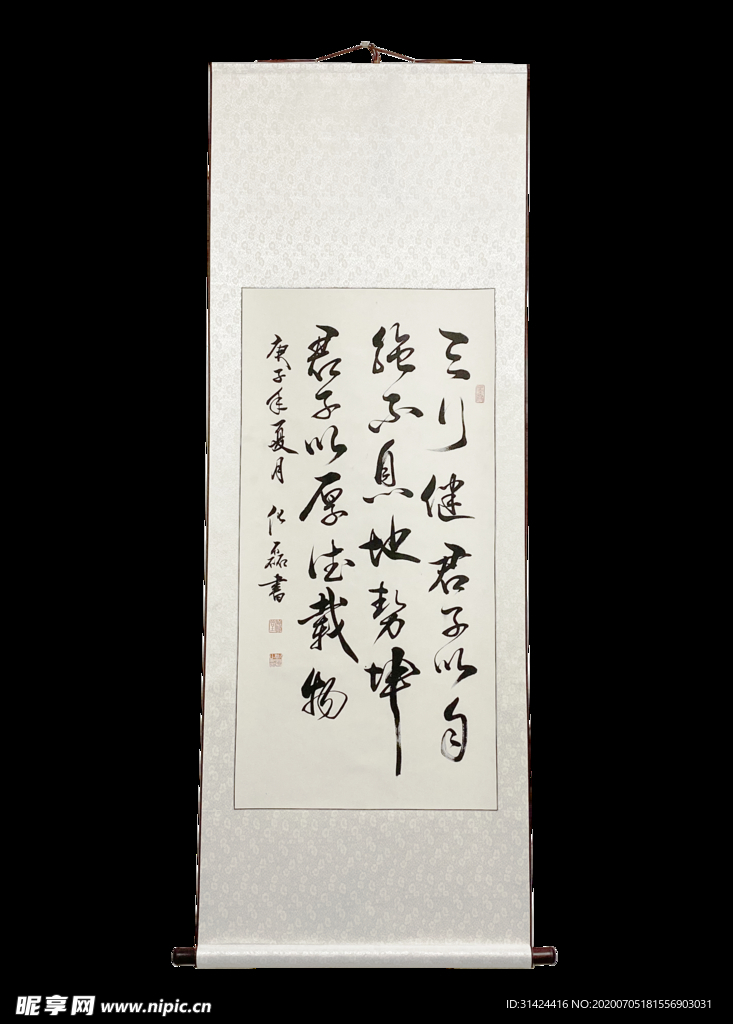 天行健君子以自
強不息地勢坤
君子以厚德載物
庚子年夏月 磊書
昵享网 www.nipic.cn
ID:31424416 NO:20200705181556903031